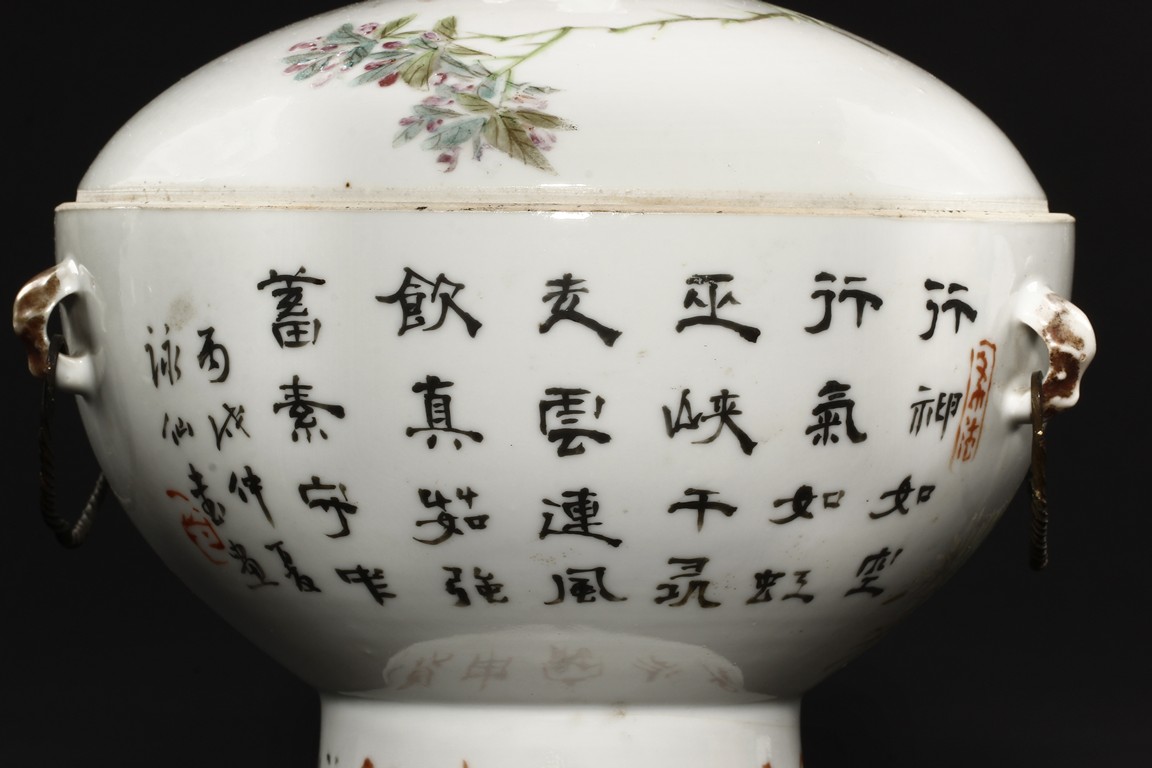 行神如空
行氣如虹
巫峽千尋
走雲連風
飲真茹強
蓄素守中
丙戌仲夏
詠仙書畫